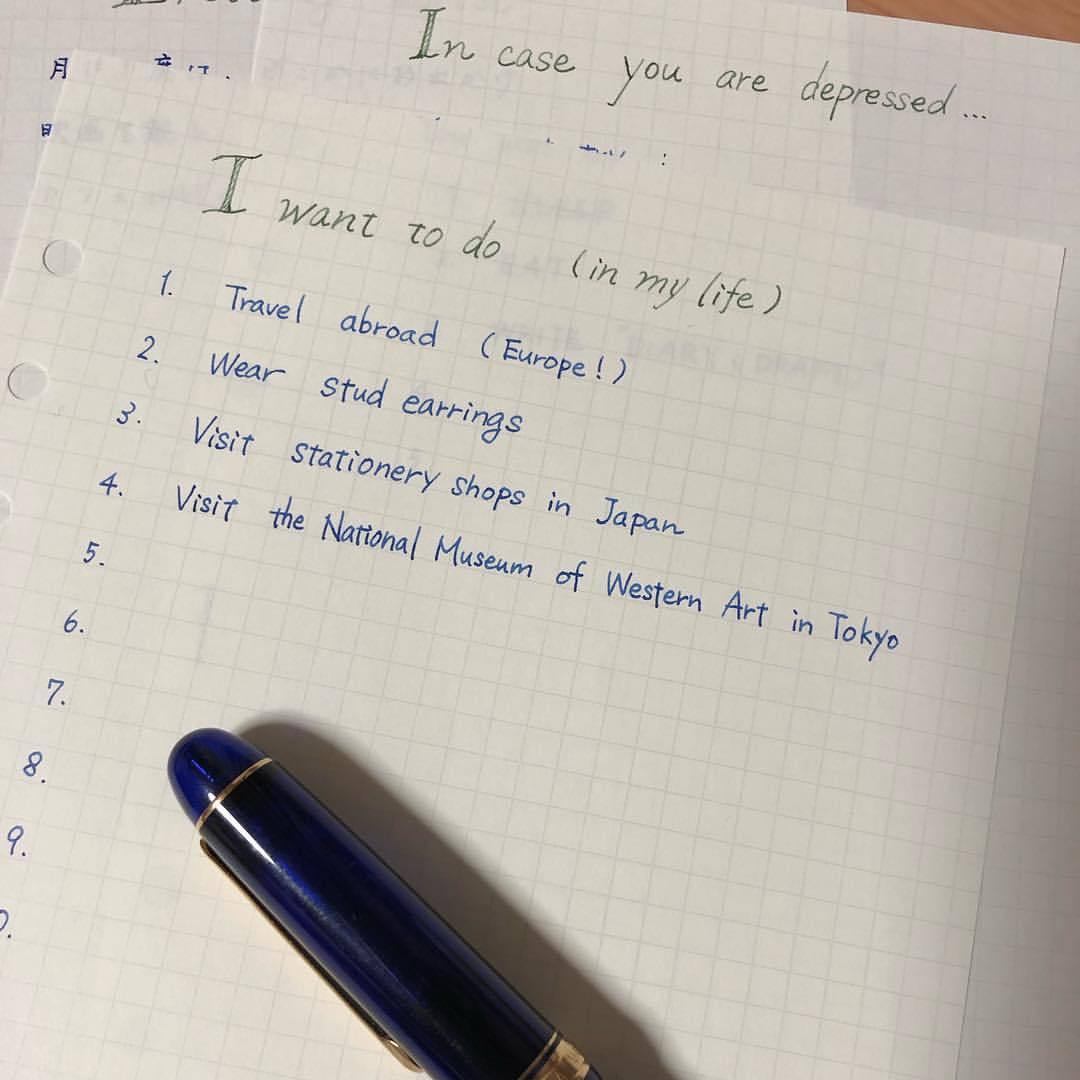 In case you are depressed...
月
I want to do (in my life)
1. Travel abroad (Europe!)
2. Wear stud earrings
3. Visit stationery shops in Japan
4. Visit the National Museum of Western Art in Tokyo
5.
6.
7.
8.
9.